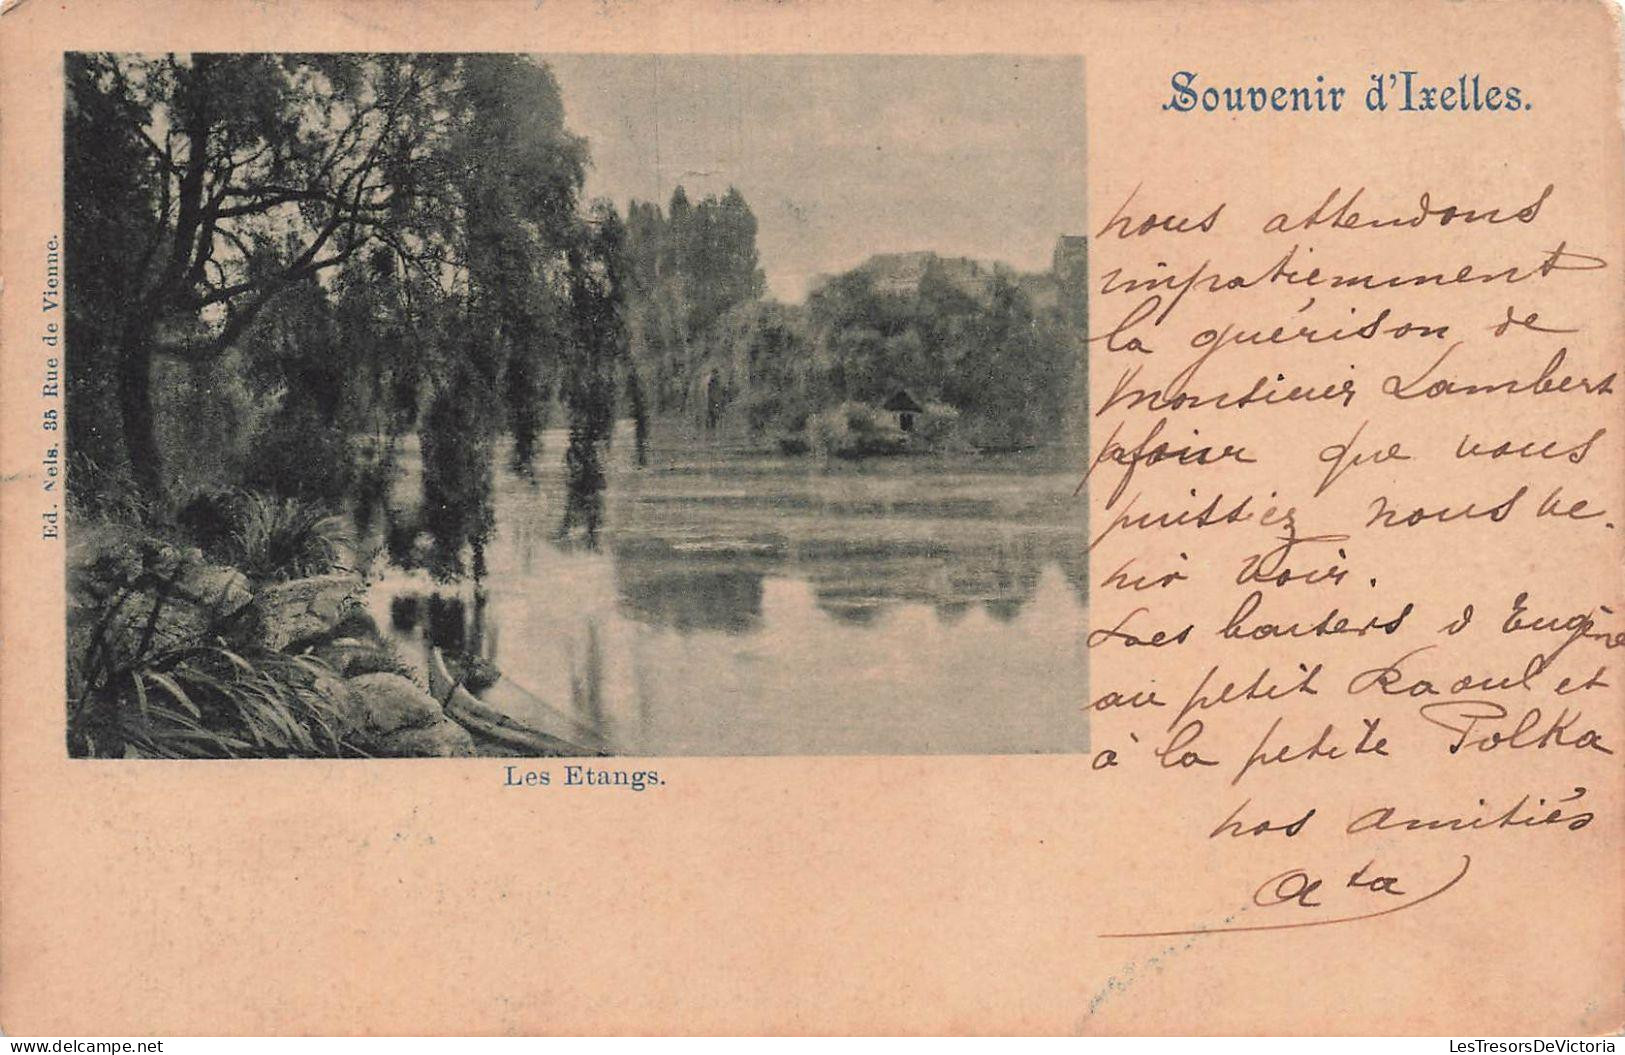 Souvenir d'Ixelles.
nous attendons
impatiemment
la guérison de
Monsieur Lambert
pour que vous
puissiez nous ve-
nir voir.
Les baisers d'Eugène
au petit Raoul et
à la petite Polka
nos amitiés
Ed. Nels. 35 Rue de Vienne.
Les Etangs.
LesTresorsDeVictoria
www.delcampe.net